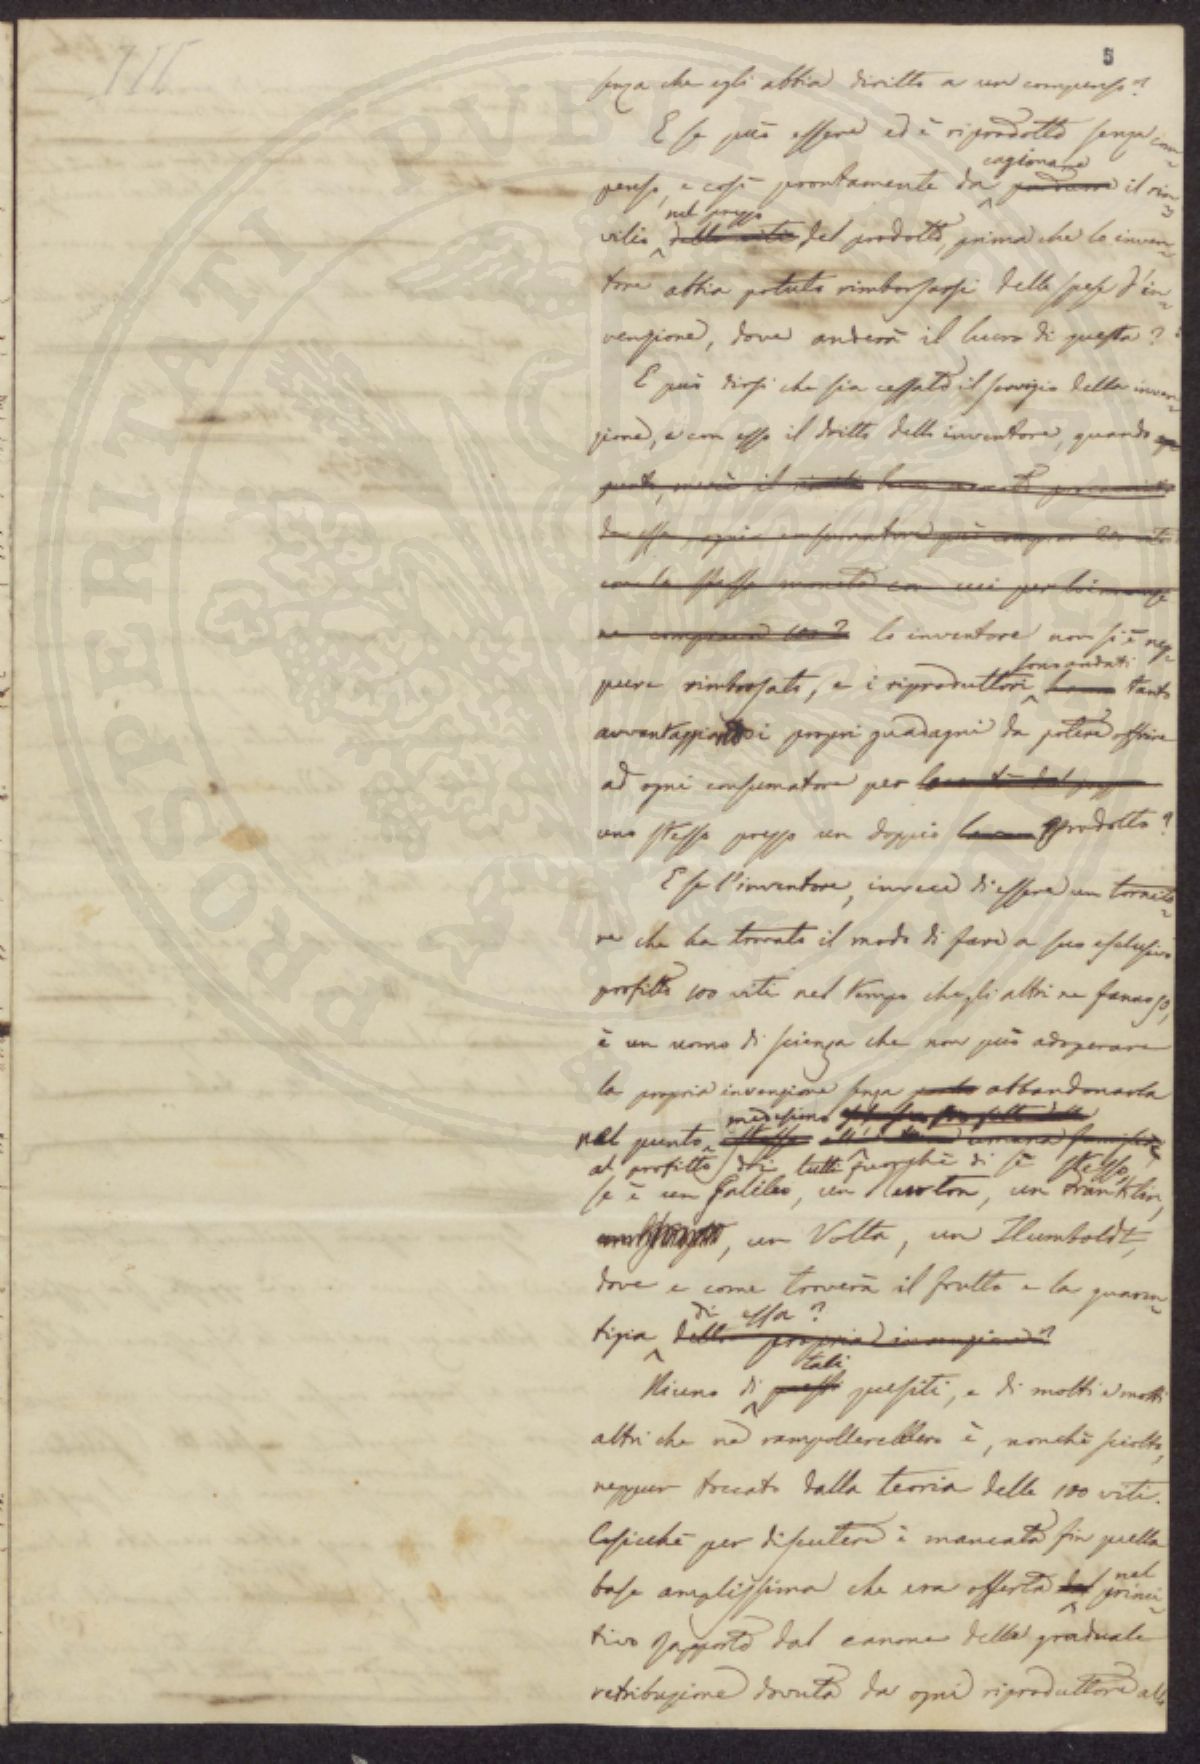 5
senza che egli abbia diritto a un compenso?
E se può essere ed è riprodotto senza com-
penso, e così prontamente da cagionare il rin-
vilio nel prezzo del prodotto, prima che lo inven-
tore abbia potuto rimborsarsi delle spese d'in-
venzione, dove anderà il lucro di questa?
E può dirsi che sia cessato il servizio della inven-
zione, e con esso il dritto dello inventore, quando
lo inventore non si è nep-
pure rimborsato, e i riproduttori sono andati tanto
avvantaggiando i propri guadagni da potere offrire
ad ogni consumatore per
uno stesso prezzo un doppio prodotto?
E se l'inventore, invece di essere un tornito-
re che ha trovato il modo di fare a suo esclusivo
profitto 100 viti nel tempo che gli altri ne fanno 50,
è un uomo di scienza che non può adoperare
la propria invenzione senza abbandonarla
nel punto medesimo
al profitto di tutti fuorchè di sè stesso,
se è un Galileo, un Newton, un Franklin,
un Volta, un Humboldt,
dove e come troverà il frutto e la guaren-
tigia di essa?
Niuno di tali quesiti, e di molti e molti
altri che ne rampollerebbero è, nonchè sciolto,
neppur toccato dalla teoria delle 100 viti.
Cosicchè per discutere è mancata fin quella
base amplissima che era offerta nel primi-
tivo rapporto dal canone della graduale
retribuzione dovuta da ogni riproduttore allo